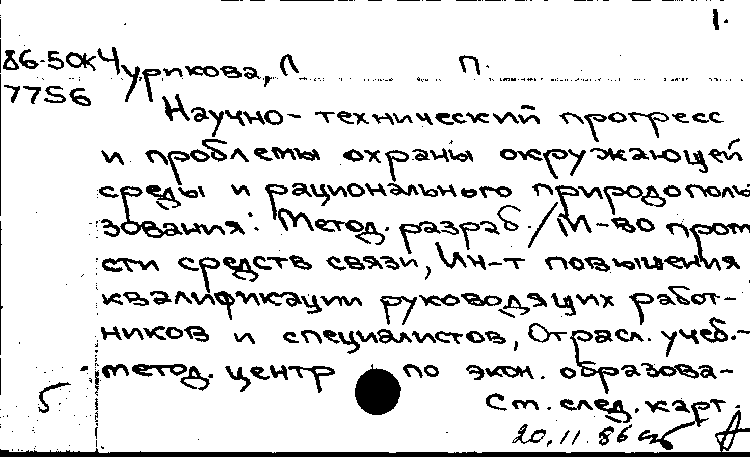 1.
86-50К Чурикова, Л П.
7756
Научно-технический прогресс
и проблемы охраны окружающей
среды и рационального природополь
зования: Метод. разраб. / М-во пром
сти средств связи, Ин-т повышения
квалификации руководящих работ-
ников и специалистов, Отрасл. учеб.-
метод. центр по экон. образова-
5 См. след. карт.
20.11.86